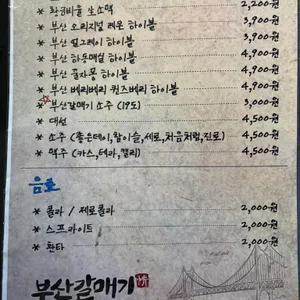 * 황금비율 생소맥 2,200원
* 부산 오리지널 레몬 하이볼 3,900원
* 부산 얼그레이 하이볼 3,900원
* 부산 하동매실 하이볼 4,900원
* 부산 유자몽 하이볼 4,900원
* 부산 베리베리 퀸즈베리 하이볼 4,900원
* 부산갈매기 소주 (19도) 3,000원
* 대선 4,500원
* 소주 (좋은데이,참이슬,새로,처음처럼,진로) 4,500원
* 맥주 (카스,테라,켈리) 4,500원
음료
* 콜라 / 제로콜라 2,000원
* 스프라이트 2,000원
* 환타 2,000원
부산갈매기